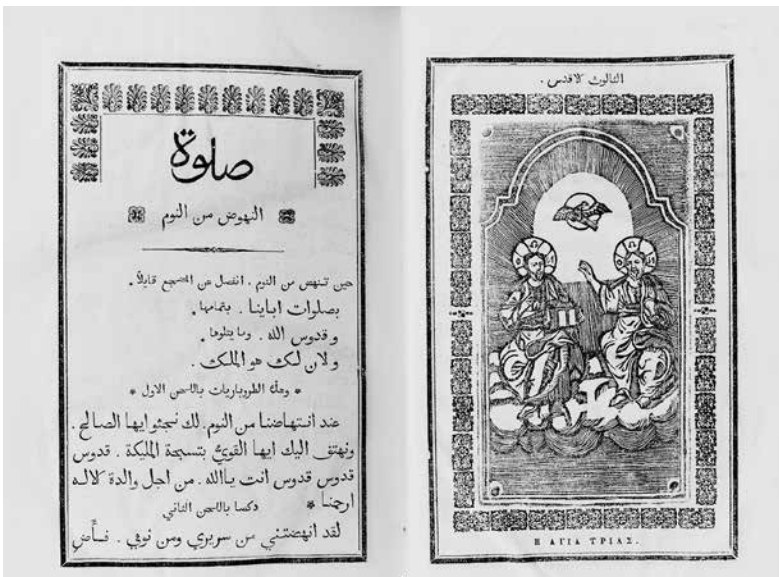 الثالوث كلاقدس .
Η ΑΓΙΑ ΤΡΙΑΣ.
صلوة
النهوض من النوم
حين تنهض من النوم . انفصل عن المضجع قايلاً .
بصلوات اباينا . بتمامها .
وقدوس الله . وما يتلوها .
ولان لك هو الملك .
* وهذه الطروباريات باللحن الاول *
عند انتهاضنا من النوم. لك نجثو ايها الصالح .
ونهتف اليك ايها القوي بتسبحة المليكة . قدوس
قدوس قدوس انت ياالله . من اجل والدة كلاله
ارحمنا * دكصا باللحن الثاني
لقد انهضتني من سريري ومن نومي . فأض